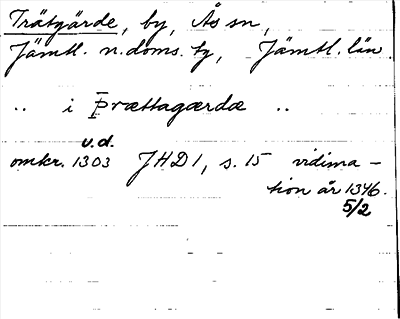 Trätgärde, by, Ås sn,
Jämtl. n. doms. tg, Jämtl. län
.. i Þrættagærdæ ..
u.d.
omkr. 1303 JHD 1, s. 15 vidima-
tion år 1346.
5/2